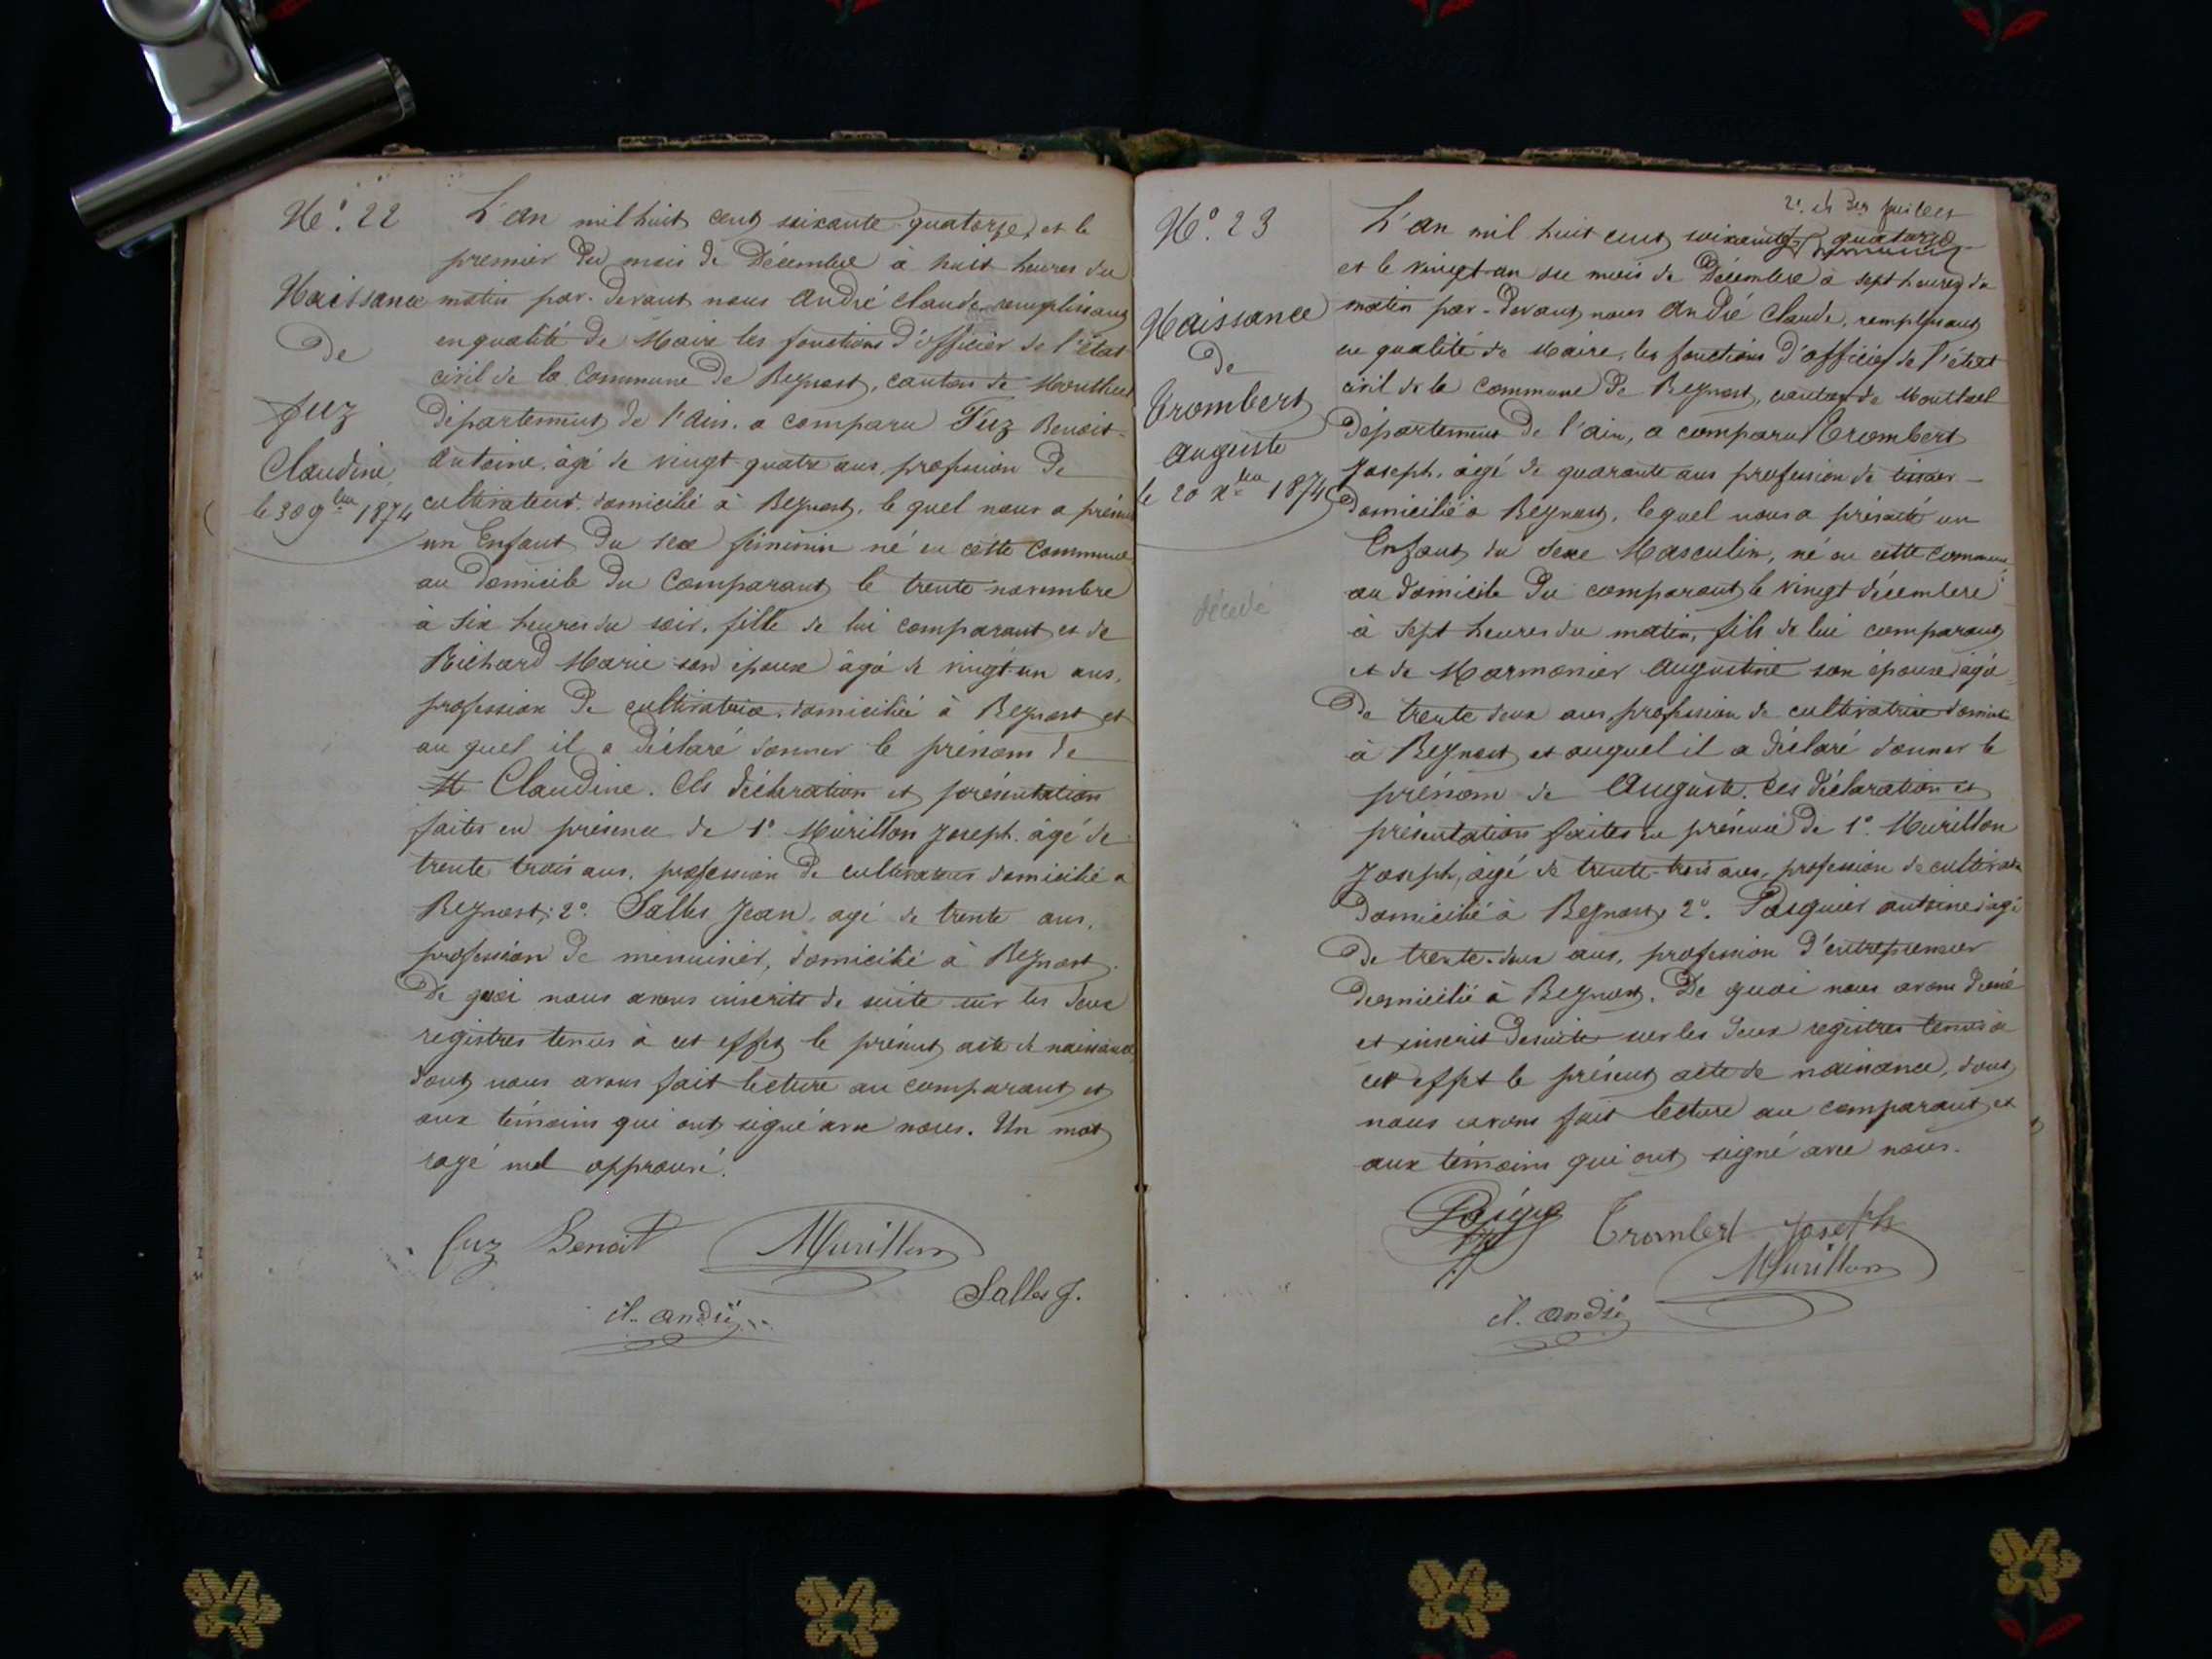 N.° 22
Naissance
De
Fuz
Claudine
le 30 9bre 1874
L'an mil huit cent soixante quatorze et le
premier du mois de Décembre à huit heures du
matin par-devant nous André Claude remplissant
en qualité de Maire les fonctions d'officier de l'état
civil de la Commune de Beynost, canton de Montluel
département de l'Ain. a comparu Fuz Benoit-
Antoine. âgé de vingt quatre ans, profession de
cultivateur. domicilié à Beynost, le quel nous a présenté
un Enfant du sexe féminin né en cette Commune
au domicile du Comparant le trente novembre
à six heures du soir, fille de lui comparant et de
Richard Marie son épouse âgé de vingt-un ans,
profession de cultivatrice. domiciliée à Beynost et
au quel il a déclaré donner le prénom de
Claudine. Ces déclaration et présentation
faites en présence de 1° Murillon Joseph. âgé de
trente trois ans, profession de cultivateur domicilié à
Beynost; 2° Salles Jean. agé de trente ans,
profession de menuisier, domicilié à Beynost.
De quoi nous avons inscrit de suite sur les deux
registres tenus à cet effet le présent acte de naissance
dont nous avons fait lecture au comparant et
aux témoins qui ont signé avec nous. Un mot
rayé nul approuvé.
Fuz Benoit Murillon
Salles J.
Cl. André
N.° 23
Naissance
De
Trombert
Auguste
le 20 Xbre 1874
décédé
2e et Der feuillet
L'an mil huit cent soixante quatorze
et le vingt-un du mois de Décembre à sept heures du
matin par-devant nous André Claude, remplissant
en qualité de Maire, les fonctions d'officier de l'état
civil de la commune de Beynost, canton de Montluel
Département de l'ain, a comparu Trombert
Joseph, âgé de quarante ans profession de tissier
Domicilié à Beynost, lequel nous a présenté un
Enfant du sexe Masculin, né en cette commune
au domicile du comparant le vingt décembre
à sept heures du matin, fils de lui comparant
et de Marmonier Augustine son épouse âgée
De trente deux ans, profession de cultivatrice
à Beynost et auquel il a déclaré donner le
prénom de Auguste. Ces déclaration et
présentation faites en présence de 1° Murillon
Joseph, âgé de trente-trois ans, profession de cultivateur
Domicilié à Beynost, 2°. Pasquier antoine âgé
De trente-deux ans, profession d'entrepreneur
Domicilié à Beynost. De quoi nous avons
et inscrit desuite sur les deux registres tenus à
cet effet le présent acte de naissance, dont
nous avons fait lecture au comparant et
aux témoins qui ont signé avec nous.
Trombert Joseph
Murillon
Cl. André